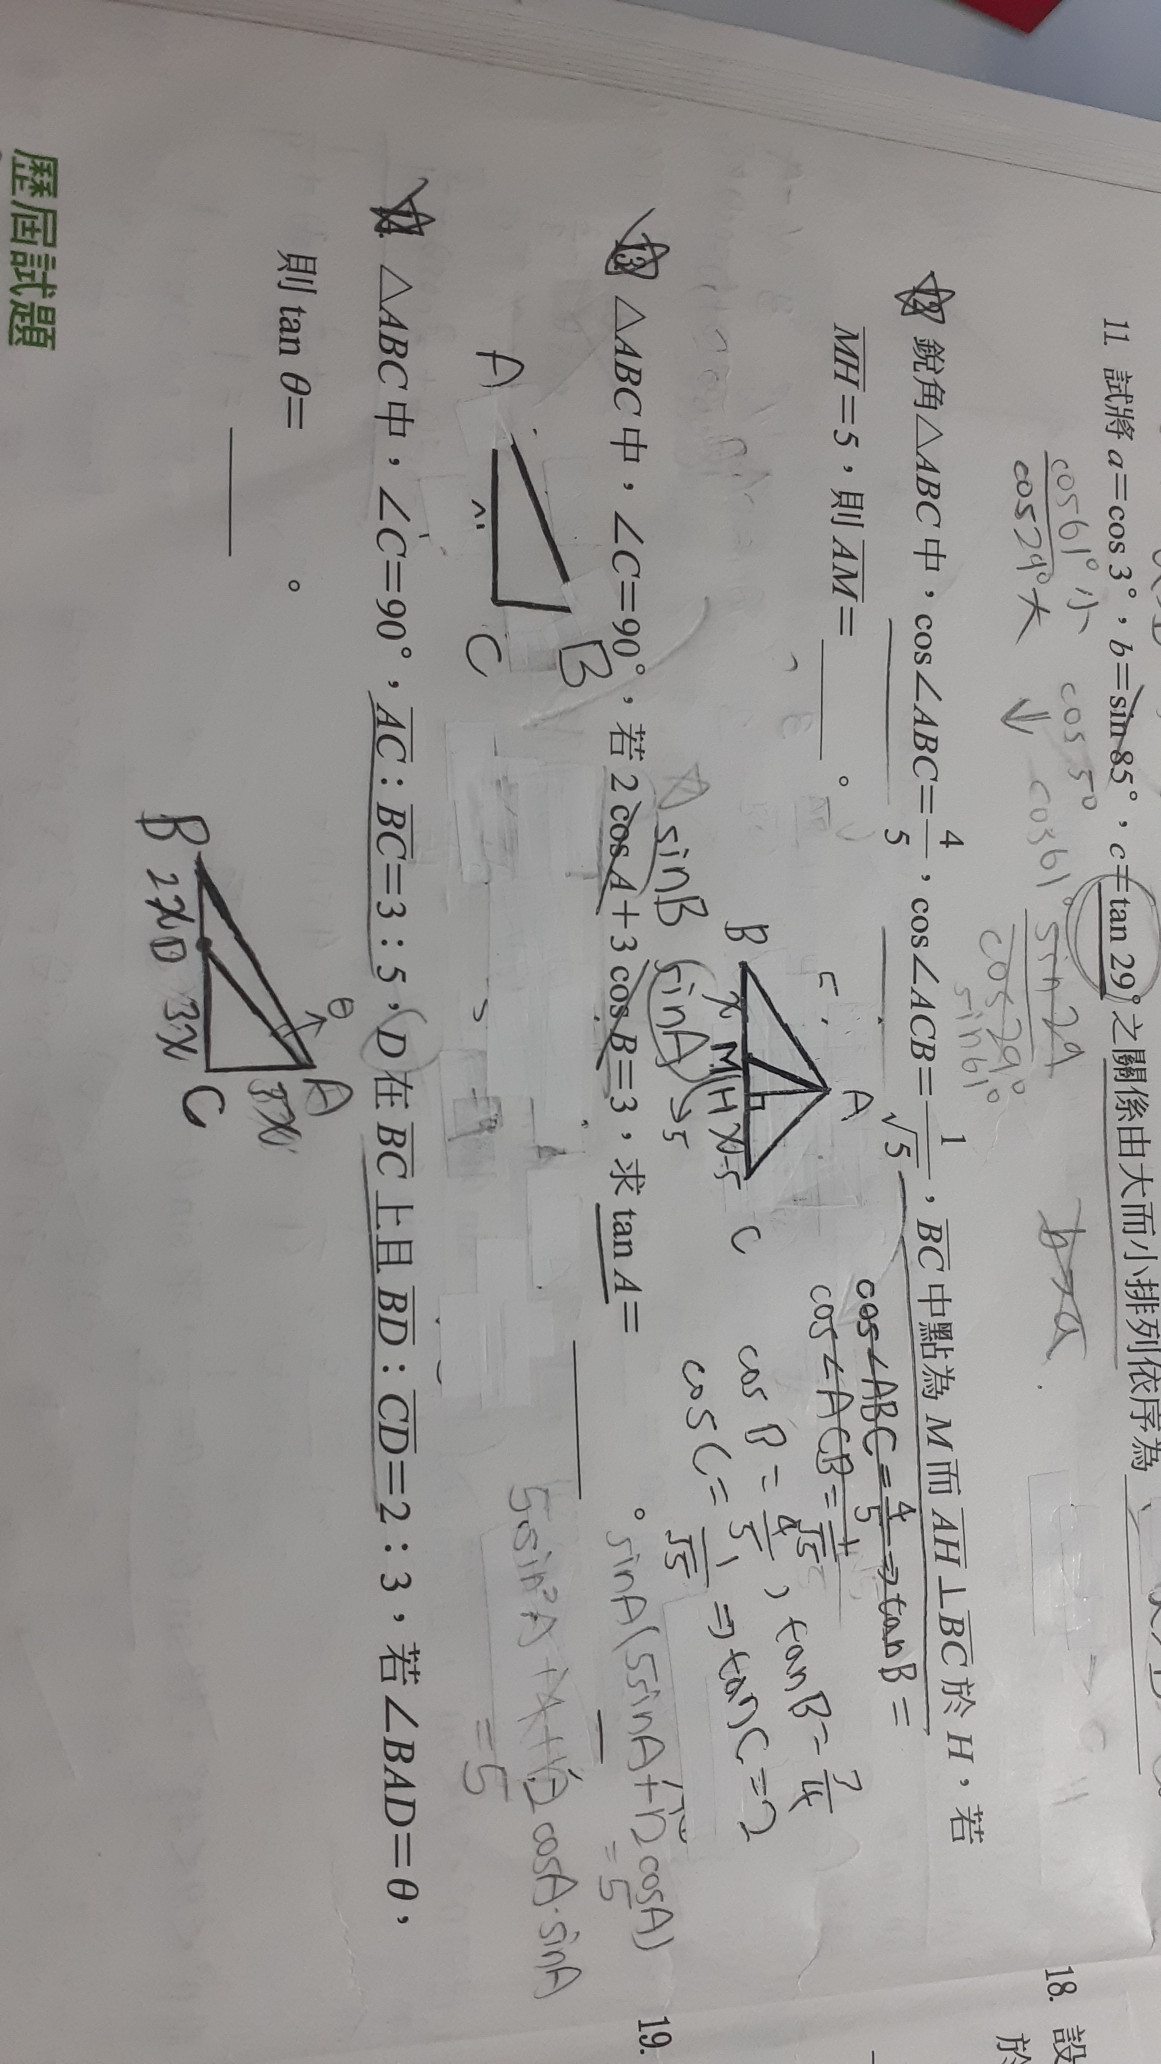 11. 試將 a=cos 3°，b=sin 85°，c=tan 29°之關係由大而小排列依序為
cos61° 小
cos29° 大
⇓
cos5°
cos61°
sin29
cos29°
sin61°
b>a
12. 銳角△ABC中，cos∠ABC=4/5，cos∠ACB=1/√5，BC中點為M而AH⊥BC於H，若
MH=5，則AM=＿＿＿。
A
B x M H x-5 C
5
cos∠ABC=4/5⇒tanB=
cos∠ACB=1/√5
cosB=4/5，tanB=3/4
cosC=1/√5⇒tanC=2
13. △ABC中，∠C=90°，若2cosA+3cosB=3，求tanA=＿＿＿。
sinB
sinA→5
A
B
C
sinA(5sinA+12cosA)
=5
5sin²A+
12cosA·sinA
=5
14. △ABC中，∠C=90°，AC：BC=3：5，D在BC上且BD：CD=2：3，若∠BAD=θ，
則tan θ=＿＿＿。
θ
A
3x
B 2x D 3x C
歷屆試題
18. 設
於
19.